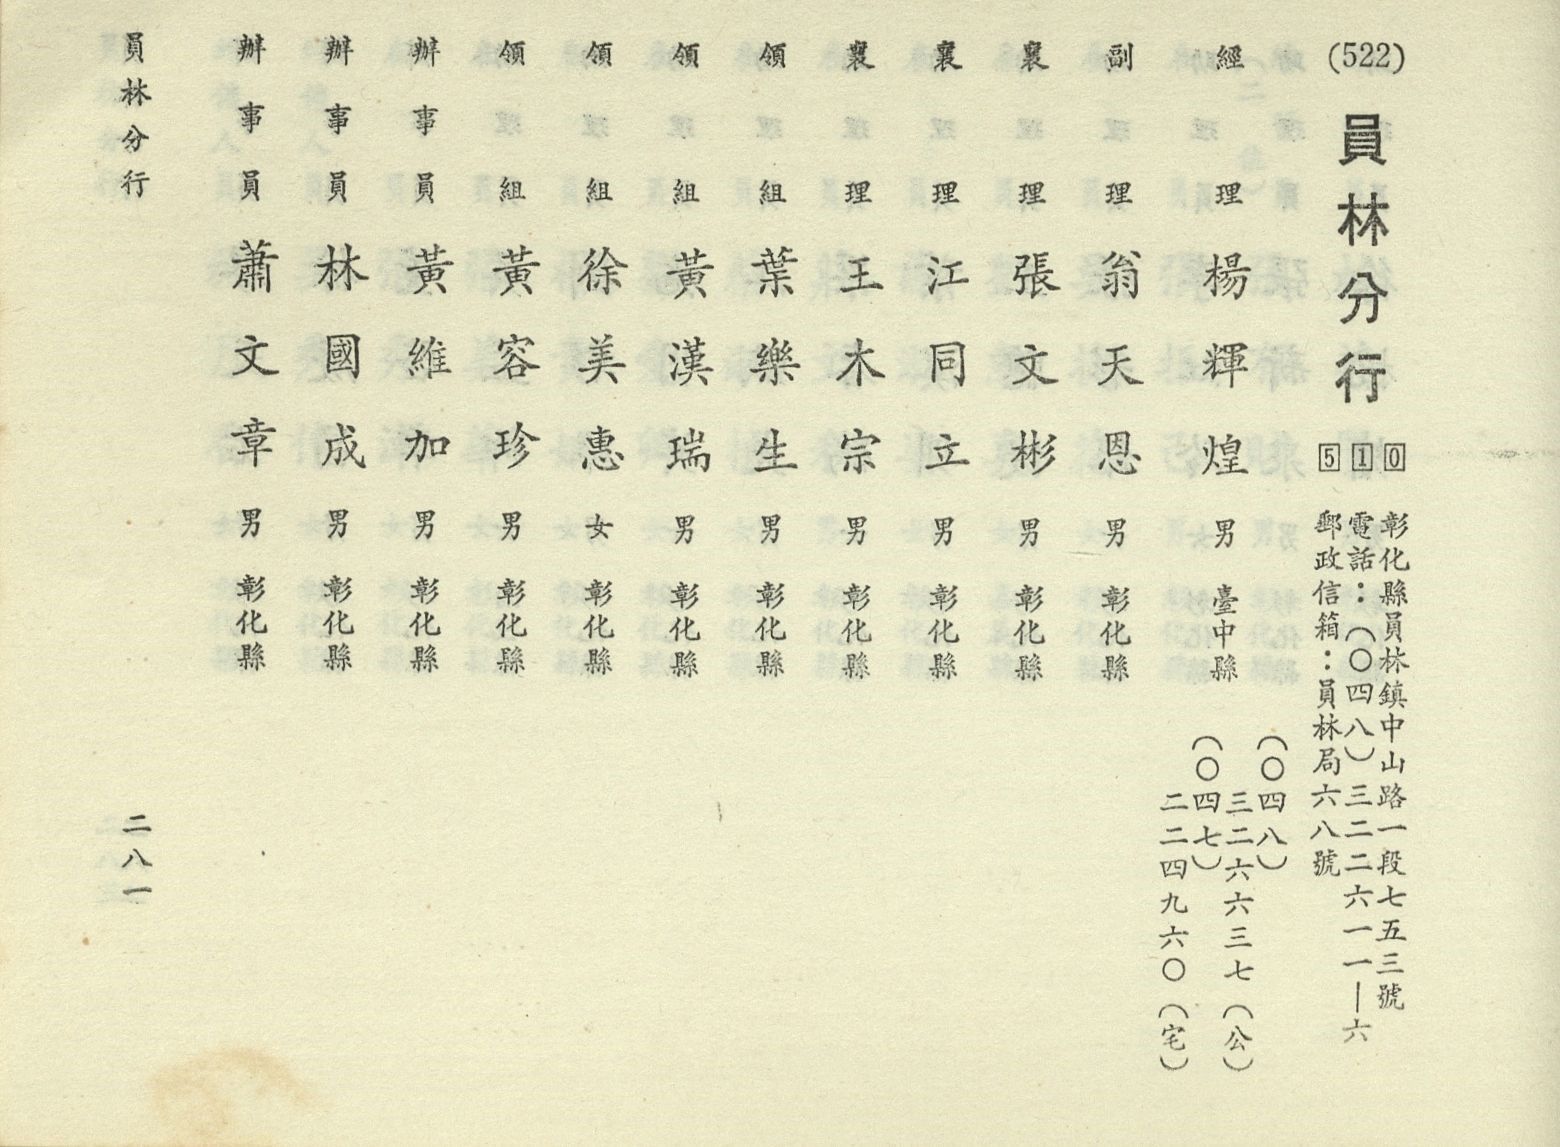 (522)
員林分行
510
彰化縣員林鎮中山路一段七五三號
電話：（〇四八）三二二六一一—六
郵政信箱：員林局六八號
經理 楊輝煌 男 臺中縣
（〇四八）
三二六六三七（公）
（〇四七）
二二四九六〇（宅）
副理 翁天恩 男 彰化縣
襄理 張文彬 男 彰化縣
襄理 江同立 男 彰化縣
襄理 王木宗 男 彰化縣
領組 葉樂生 男 彰化縣
領組 黃漢瑞 男 彰化縣
領組 徐美惠 女 彰化縣
領組 黃容珍 男 彰化縣
辦事員 黃維加 男 彰化縣
辦事員 林國成 男 彰化縣
辦事員 蕭文章 男 彰化縣
員林分行
二八一